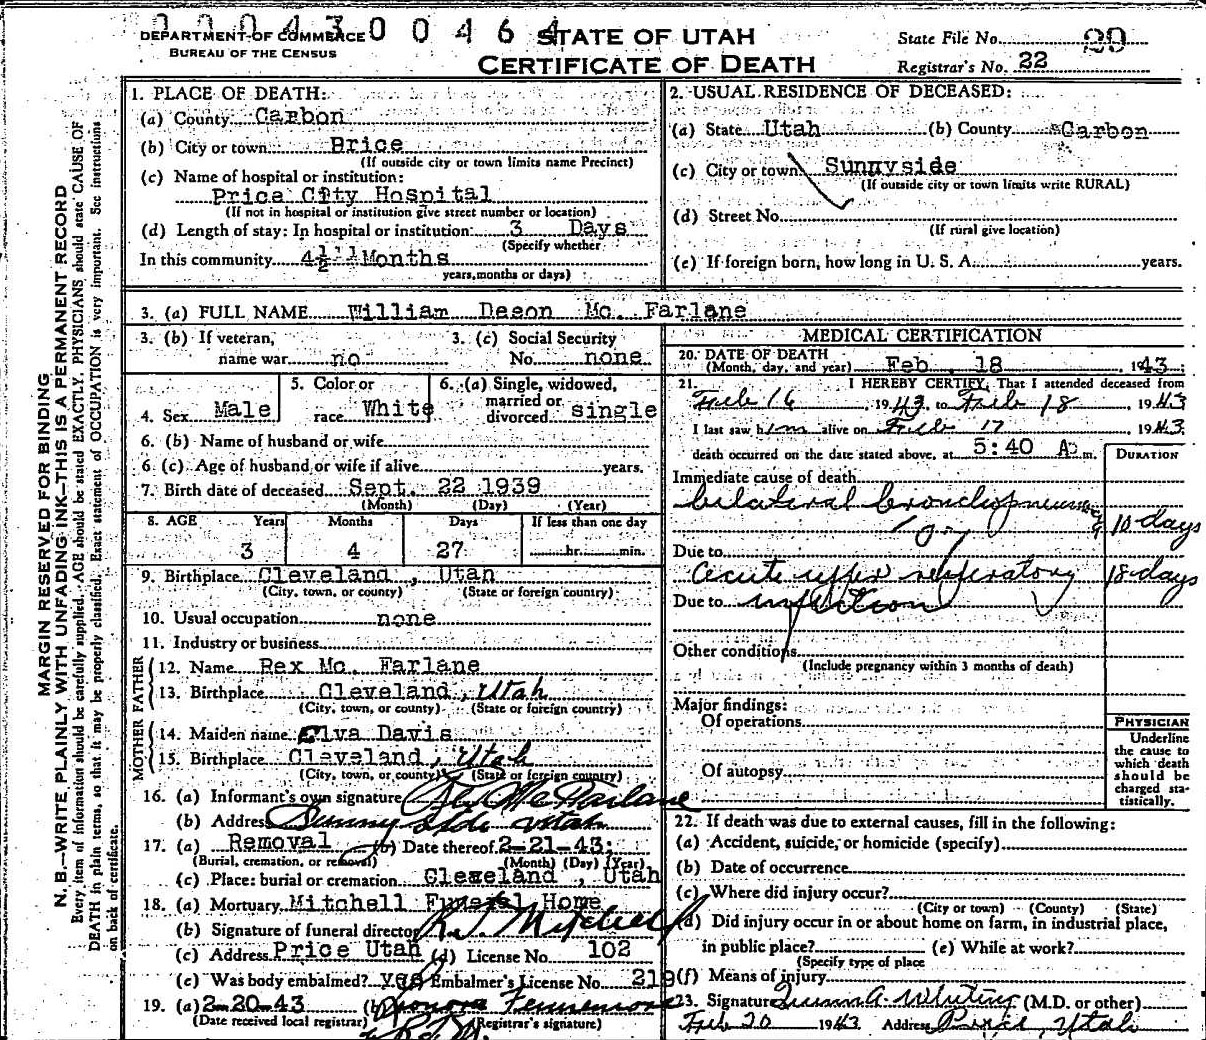 0 0 0 4 3 0 0 4 6 4
DEPARTMENT OF COMMERCE
BUREAU OF THE CENSUS
STATE OF UTAH
CERTIFICATE OF DEATH
State File No. 29
Registrar's No. 22
MARGIN RESERVED FOR BINDING
N. B.—WRITE PLAINLY WITH UNFADING INK—THIS IS A PERMANENT RECORD
Every item of information should be carefully supplied. AGE should be stated EXACTLY. PHYSICIANS should state CAUSE OF
DEATH in plain terms, so that it may be properly classified. Exact statement of OCCUPATION is very important. See instructions
on back of certificate.
1. PLACE OF DEATH:
(a) County Carbon
(b) City or town Price
(If outside city or town limits name Precinct)
(c) Name of hospital or institution:
Price City Hospital
(If not in hospital or institution give street number or location)
(d) Length of stay: In hospital or institution: 3 Days
(Specify whether
In this community 4½ Months
years, months or days)
2. USUAL RESIDENCE OF DECEASED:
(a) State Utah (b) County Carbon
(c) City or town Sunnyside
(If outside city or town limits write RURAL)
(d) Street No.
(If rural give location)
(e) If foreign born, how long in U. S. A. years.
3. (a) FULL NAME William Deson Mc. Farlane
3. (b) If veteran,
name war no
3. (c) Social Security
No. none
4. Sex Male
5. Color or
race White
6. (a) Single, widowed,
married or
divorced single
6. (b) Name of husband or wife
6. (c) Age of husband or wife if alive years.
7. Birth date of deceased Sept. 22 1939
(Month) (Day) (Year)
8. AGE Years Months Days If less than one day
3 4 27 hr. min.
9. Birthplace Cleveland, Utah
(City, town, or county) (State or foreign country)
10. Usual occupation none
11. Industry or business
FATHER
12. Name Rex Mc. Farlane
13. Birthplace Cleveland, Utah
(City, town, or county) (State or foreign country)
MOTHER
14. Maiden name Elva Davis
15. Birthplace Cleveland, Utah
(City, town, or county) (State or foreign country)
16. (a) Informant's own signature Rex McFarlane
(b) Address Sunnyside Utah
17. (a) Removal (b) Date thereof 2-21-43
(Burial, cremation, or removal) (Month) (Day) (Year)
(c) Place: burial or cremation Cleveland, Utah
18. (a) Mortuary Mitchell Funeral Home
(b) Signature of funeral director R. J. Mitchell
(c) Address Price Utah (d) License No. 102
(e) Was body embalmed? yes Embalmer's License No. 219
19. (a) 2-20-43 (b) Fennemore
(Date received local registrar) (Registrar's signature)
MEDICAL CERTIFICATION
20. DATE OF DEATH
(Month, day, and year) Feb. 18, 1943
21. I HEREBY CERTIFY, That I attended deceased from
Feb 16, 1943, to Feb 18, 1943
I last saw him alive on Feb 17 1943
death occurred on the date stated above, at 5:40 A. m.
DURATION
Immediate cause of death
bilateral bronchopneumonia 10 days
107
Due to
acute upper respiratory 18 days
Due to infection
Other conditions
(Include pregnancy within 3 months of death)
Major findings:
Of operations
Of autopsy
PHYSICIAN
Underline
the cause to
which death
should be
charged sta-
tistically.
22. If death was due to external causes, fill in the following:
(a) Accident, suicide, or homicide (specify)
(b) Date of occurrence
(c) Where did injury occur?
(City or town) (County) (State)
(d) Did injury occur in or about home on farm, in industrial place,
in public place? (e) While at work?
(Specify type of place
(f) Means of injury
23. Signature Quinn A. Whiting (M.D. or other)
Feb 20 1943 Address Price, Utah